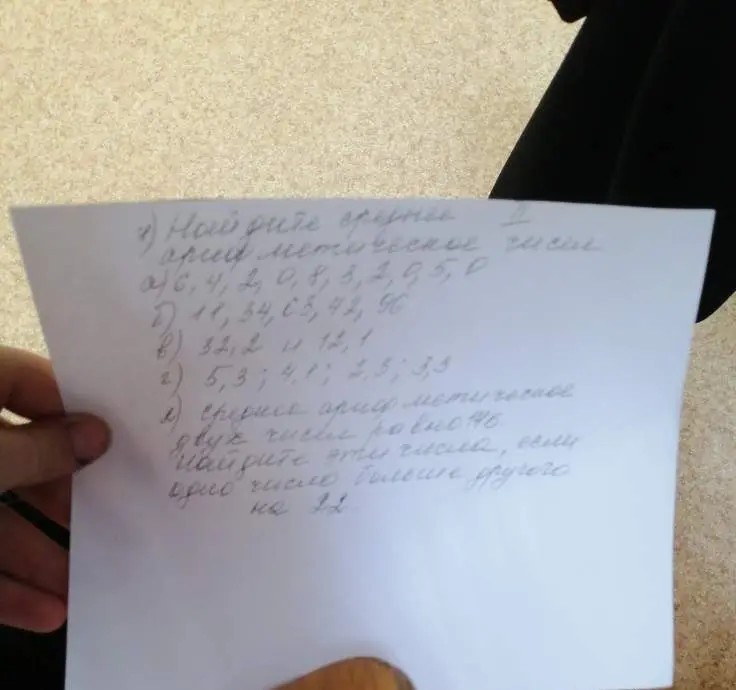 1) Найдите среднее II
арифметическое чисел
а) 6, 4, 2, 0, 8, 3, 2, 0, 5, 0
б) 11, 34, 63, 42, 96
в) 32,2 и 12,1
г) 5,3; 4,1; 2,3; 3,3
среднее арифметическое
двух чисел равно
найдите эти числа, если
одно число больше другого
на 22.